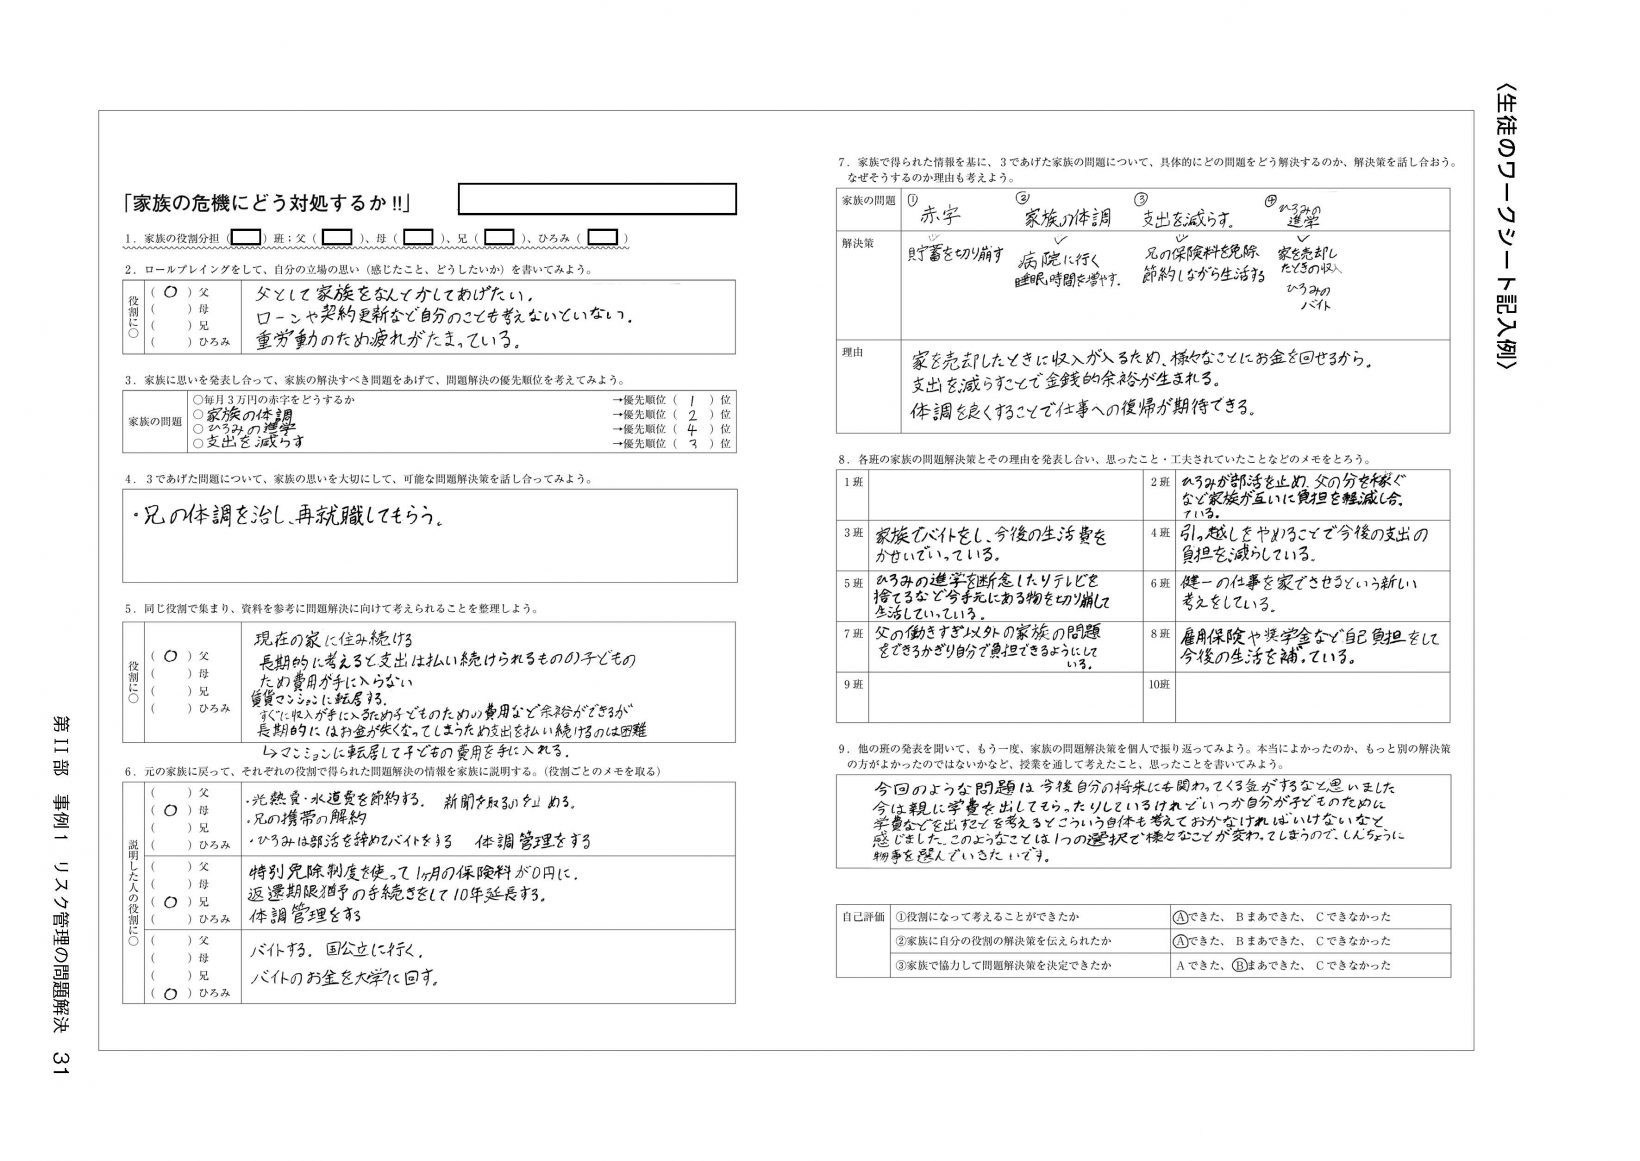 〈生徒のワークシート記入例〉
「家族の危機にどう対処するか!!」
1．家族の役割分担（　）班：父（　）、母（　）、兄（　）、ひろみ（　）
2．ロールプレイングをして、自分の立場の思い（感じたこと、どうしたいか）を書いてみよう。
役割に○
（ ○ ）父
（　）母
（　）兄
（　）ひろみ
父として家族をなんとかしてあげたい。
ローンや契約更新など自分のことも考えないといない。
重労働のため疲れがたまっている。
3．家族に思いを発表し合って、家族の解決すべき問題をあげて、問題解決の優先順位を考えてみよう。
家族の問題
○毎月3万円の赤字をどうするか →優先順位（ 1 ）位
○家族の体調 →優先順位（ 2 ）位
○ひろみの進学 →優先順位（ 4 ）位
○支出を減らす →優先順位（ 3 ）位
4．3であげた問題について、家族の思いを大切にして、可能な問題解決策を話し合ってみよう。
・兄の体調を治し、再就職してもらう。
5．同じ役割で集まり、資料を参考に問題解決に向けて考えられることを整理しよう。
役割に○
（ ○ ）父
（　）母
（　）兄
（　）ひろみ
現在の家に住み続ける
長期的に考えると支出は払い続けられるものの子どもの
ため費用が手に入らない
賃貸マンションに転居する。
すぐに収入が手に入るため子どものための費用など余裕ができるが
長期的にはお金が失くなってしまうため支出を払い続けるのは困難
↳マンションに転居して子どもの費用を手に入れる。
6．元の家族に戻って、それぞれの役割で得られた問題解決の情報を家族に説明する。（役割ごとのメモを取る）
説明した人の役割に○
（　）父
（ ○ ）母
（　）兄
（　）ひろみ
・光熱費・水道費を節約する。 新聞を取るのを止める。
・兄の携帯の解約
・ひろみは部活を辞めてバイトをする 体調管理をする
（　）父
（　）母
（ ○ ）兄
（　）ひろみ
特別免除制度を使って1ヶ月の保険料が0円に。
返還期限猶予の手続きをして10年延長する。
体調管理をする
（　）父
（　）母
（　）兄
（ ○ ）ひろみ
バイトする。国公立に行く。
バイトのお金を大学に回す。
7．家族で得られた情報を基に、3であげた家族の問題について、具体的にどの問題をどう解決するのか、解決策を話し合おう。
なぜそうするのか理由も考えよう。
家族の問題
① 赤字
② 家族の体調
③ 支出を減らす。
④ ひろみの
進学
解決策
貯蓄を切り崩す
病院に行く
睡眠時間を増やす。
兄の保険料を免除
節約しながら生活する
家を売却し
たときの収入
ひろみの
バイト
理由
家を売却したときに収入が入るため、様々なことにお金を回せるから。
支出を減らすことで金銭的余裕が生まれる。
体調を良くすることで仕事への復帰が期待できる。
8．各班の家族の問題解決策とその理由を発表し合い、思ったこと・工夫されていたことなどのメモをとろう。
1班
2班 ひろみが部活を止め、父の分を稼ぐ
など家族が互いに負担を軽減し合っ
ている。
3班 家族でバイトをし、今後の生活費を
かせいでいっている。
4班 引っ越しをやめることで今後の支出の
負担を減らしている。
5班 ひろみの進学を断念したりテレビを
捨てるなど今手元にある物を切り崩して
生活していっている。
6班 健一の仕事を家でさせるという新しい
考えをしている。
7班 父の働きすぎ以外の家族の問題
をできるかぎり自分で負担できるようにして
いる。
8班 雇用保険や奨学金など自己負担をして
今後の生活を補っている。
9班
10班
9．他の班の発表を聞いて、もう一度、家族の問題解決策を個人で振り返ってみよう。本当によかったのか、もっと別の解決策
の方がよかったのではないかなど、授業を通して考えたこと、思ったことを書いてみよう。
今回のような問題は今後自分の将来にも関わってくる気がするなと思いました
今は親に学費を出してもらったりしているけれどいつか自分が子どものために
学費などを出すことを考えるとこういう自体も考えておかなければいけないなと
感じました。このようなことは1つの選択で様々なことが変わってしまうので、しんちょうに
物事を選んでいきたいです。
自己評価
①役割になって考えることができたか Ⓐできた、 Bまあできた、 Cできなかった
②家族に自分の役割の解決策を伝えられたか Ⓐできた、 Bまあできた、 Cできなかった
③家族で協力して問題解決策を決定できたか Aできた、 Ⓑまあできた、 Cできなかった
第II部 事例1 リスク管理の問題解決 31